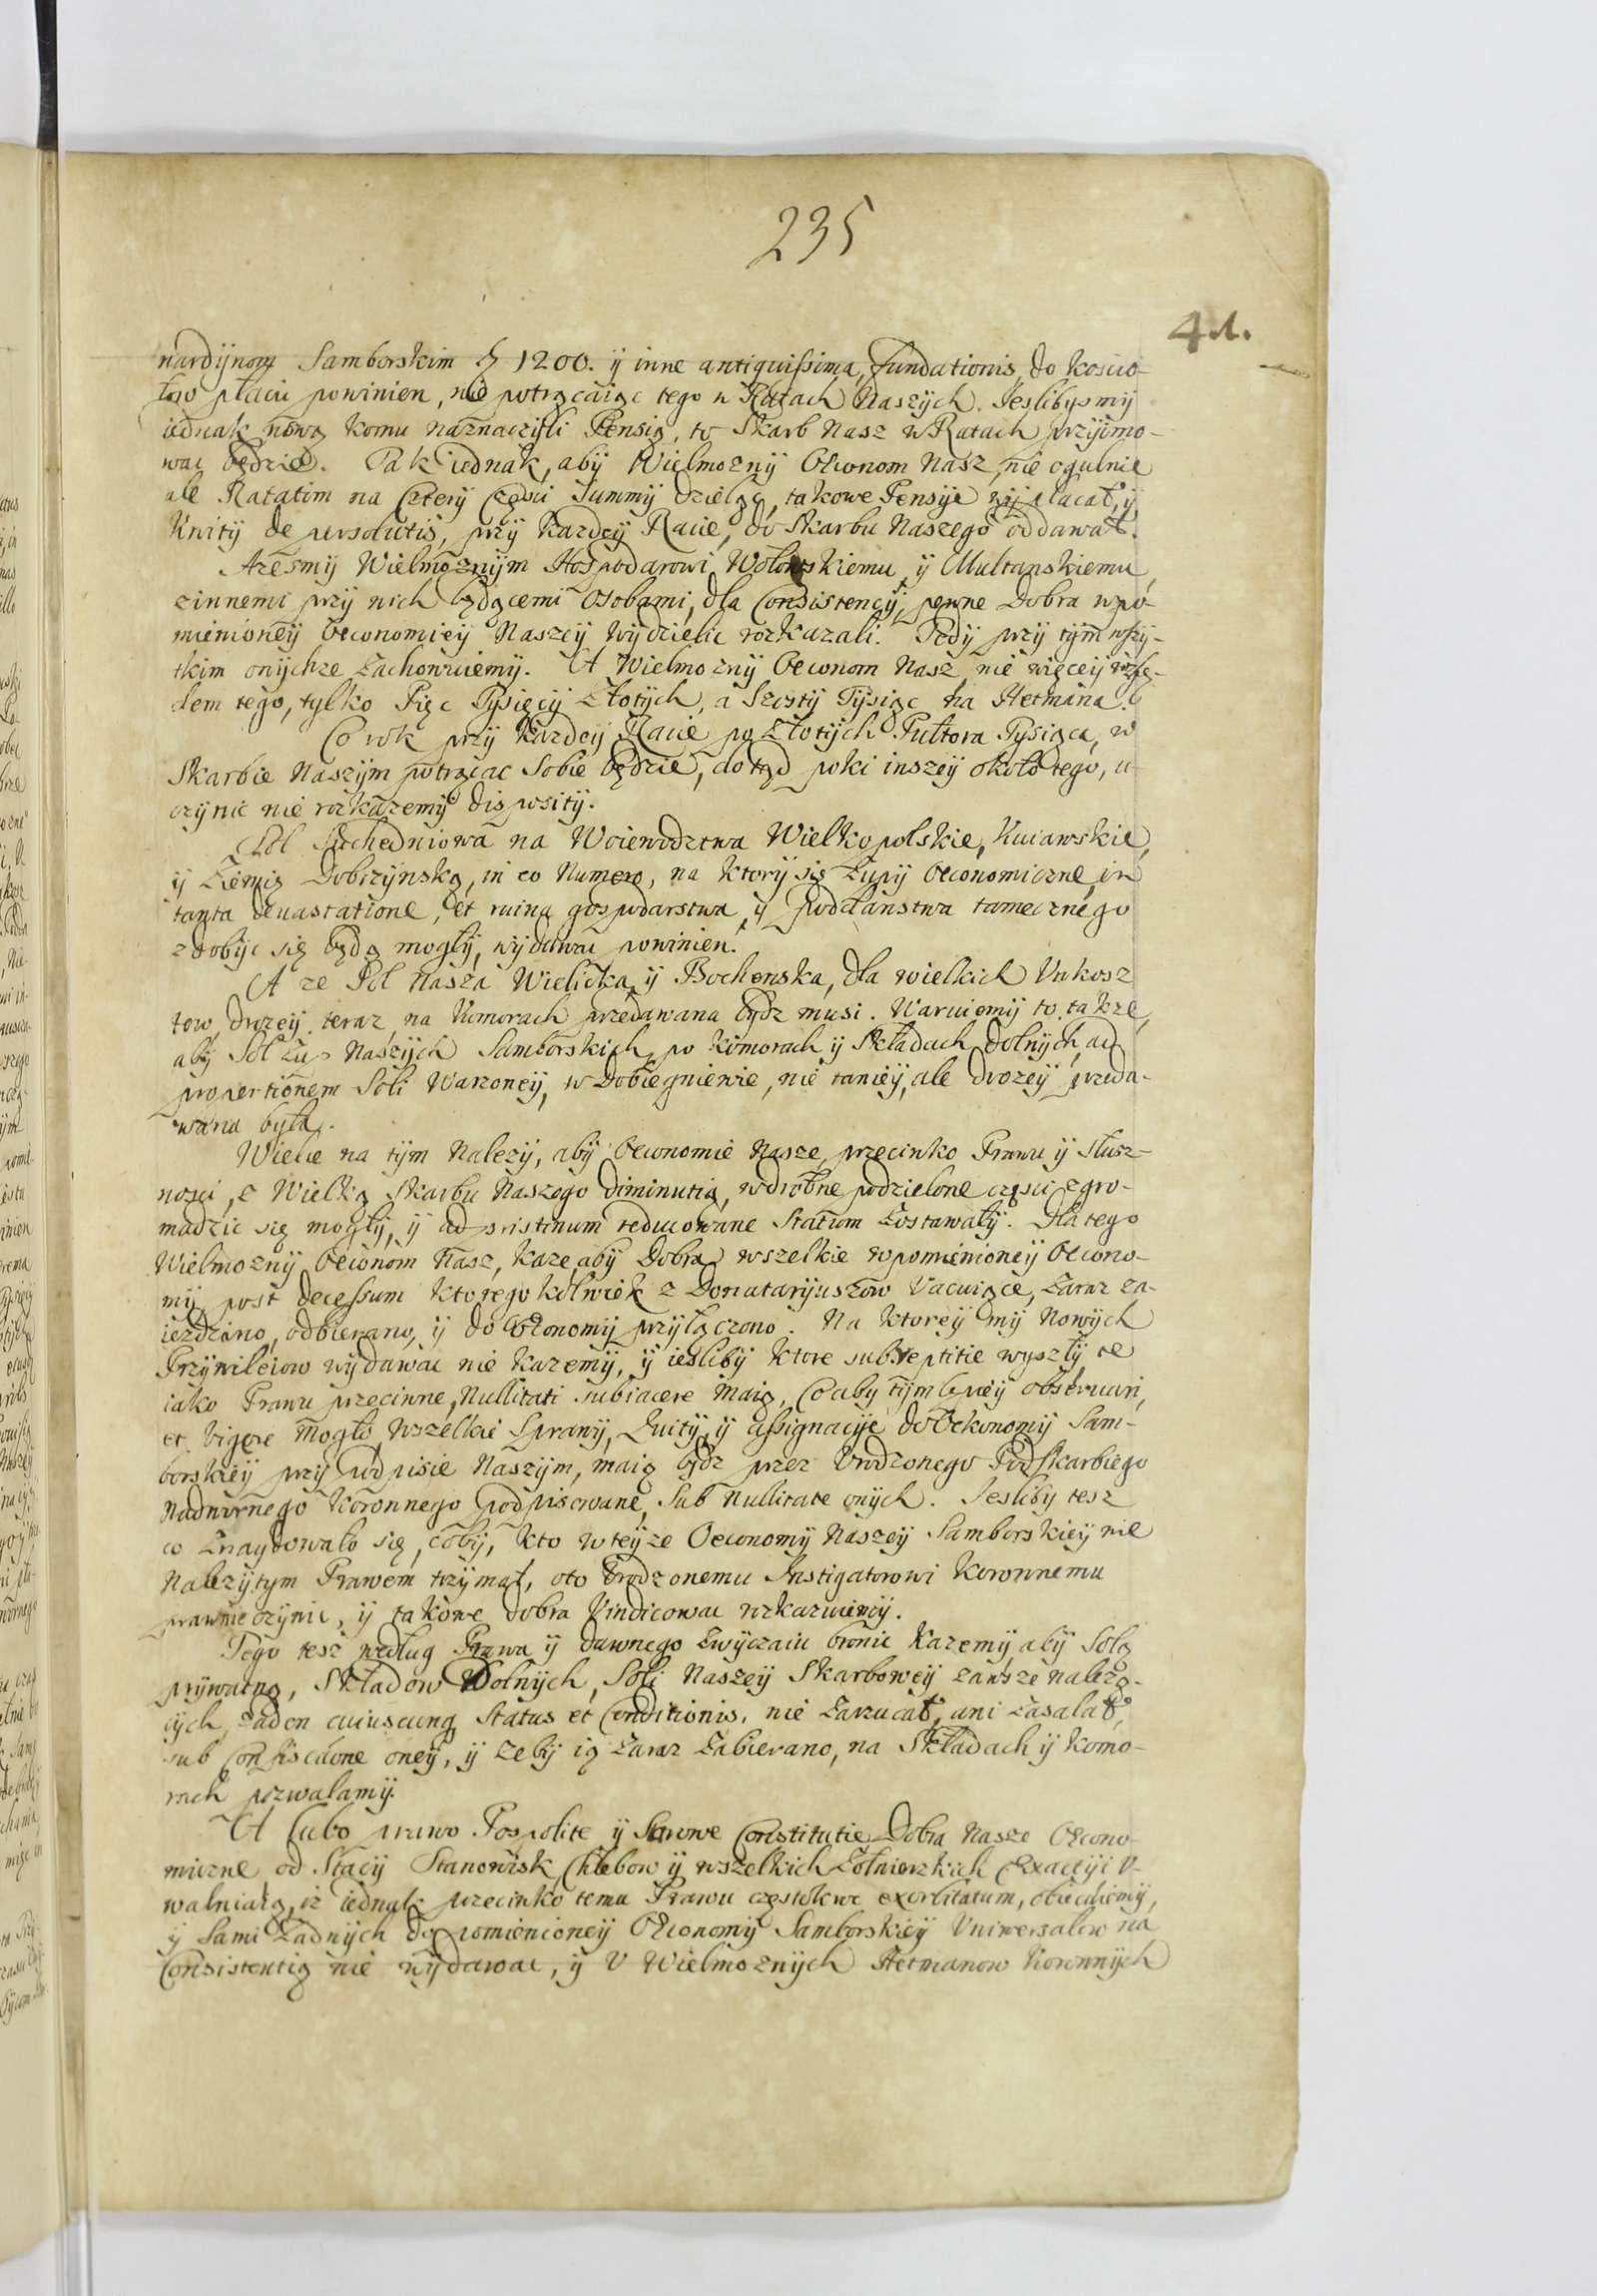 235
41.
nardÿnom Samborskim # 1200. ÿ inne antiquissima, fundationis, do koscio-
łow płacic powinien, nie potrącaiąc tego w Ratach Naszÿch. Jeslibysmÿ
iednak nową komu naznaczÿli Pensią, to Skarb Nasz w Ratach przÿimo-
wac będzie. Tak iednak, abÿ Wielmoznÿ Oeconom Nasz, nie ogulnie
ale Ratatim na Czterÿ Częsci Summÿ dzieląc, takowe Pensÿe wÿpłacał, ÿ
Kwitÿ de persolutis, przÿ kazdeÿ Racie, do Skarbu Naszego oddawał.
Azesmÿ Wielmoznÿm Hospodarowi Wołoskiemu, ÿ Multanskiemu,
zinnemi przÿ nich będącemi Osobami, dla Consistencÿi, pewne Dobra wpo-
mienioneÿ Oeconomieÿ Naszeÿ wÿdzielic rozkazali. Tedÿ przÿ tÿm wszÿ-
tkim onÿchze Zachowuiemÿ. A Wielmoznÿ Oeconom Nasz nie więceÿ wzglę-
dem tego, tylko Pięc Tÿsięcÿ Złotÿch, a Szostÿ Tÿsiąc na Hetmana.
Co rok przÿ kazdeÿ Racie po Złotÿch Pułtora Tÿsiąca, w
Skarbie Naszÿm potrącac Sobie będzie, dotąd poki inszeÿ około tego, u-
czÿnic nie rozkazemÿ disposÿtiÿ.
Sol Suchedniowa na Woiewodztwa Wielkopolskie, Kuiawskie,
ÿ Ziemię Dobrzÿnską, in eo Numero, na ktorÿ się Zupÿ Oeconomiczne, in
tanta devastatione, et ruina gospodarstwa, ÿ poddanstwa tamecznego
zdobÿc się będą mogłÿ, wÿdawac powinien.
A ze Sol Nasza Wielicka, ÿ Bochenska, dla wielkich Vnkosz
tow, drozeÿ teraz na Komorach przedawana bÿdz musi. Waruiemÿ to takze,
abÿ Sol Zup Naszÿch Samborskich, po komorach ÿ Składach dolnÿch, ad
proportionem Soli Warzoneÿ, w Dobiegniewie, nie tanieÿ, ale drozeÿ przeda-
wana była.
Wiele na tÿm Nalezÿ, abÿ Oeconomie Nasze, przeciwko Prawu ÿ Słusz-
nosci, z Wielką Skarbu Naszego diminutią, wdrobne podzielone częsci zgro-
madzic się mogłÿ, ÿ ad pristinum reducowane Statum Zostawałÿ. Dla tego
Wielmoznÿ Oeconom Nasz, kaze, abÿ Dobra wszelkie wpomienioneÿ Oecono-
mÿ, post decessum ktoregokolwiek z Donatarÿuszow Vacuiące, Zaraz za-
iezdzano, odbierano, ÿ do Oeconomÿ przÿłączono. Na ktoreÿ mÿ Nowÿch
Przÿwileiow wÿdawac nie kazemÿ, ÿ ieslibÿ ktore subreptitie wyszłÿ, te
iako Prawu przeciwne, Nullitati subiacere maią, Co aby tÿm lepieÿ observari,
et vigere mogło, Wszelkie Sprawÿ, Quitÿ, ÿ assignacÿe do Oekonomÿ Sam-
borskieÿ przÿ podpisie Naszÿm, maią bÿdz przez Vrodzonego Podskarbiego
Nadwornego Koronnego podpisowane, Sub Nullitate onÿch. Jesliby tesz
co Znaydowało się, cobÿ, kto wteÿze Oeconomÿ Naszeÿ Samborskieÿ nie
Nalezÿtym Prawem trzÿmał, oto Vrodzonemu Instigatorowi Koronnemu
prawnie czÿnic, ÿ takowe dobra Vindicowac rozkazuiemÿ.
Tego tesz według Prawa ÿ dawnego Zwÿczaiu bronic kazemÿ, abÿ Solą
prÿwatną, Składow Dolnÿch, Soli Naszeÿ Skarboweÿ zawsze nalezą-
cÿch, zaden cuiuscunq Status et Conditionis, nie Zarzucał, ani Zasalał,
sub Confiscatione oneÿ, ÿ zebÿ ią Zaraz Zabierano, na Składach ÿ komo-
rach pozwalamÿ.
A lubo prawo Pospolite ÿ Surowe Constitutie Dobra Nasze Oecono-
miczne od Stacÿ Stanowisk Chlebow ÿ wszelkich Zołnierzkich Exactÿi V-
walniaią, iz iednak przeciwko temu Prawu częstokroc exorbitatum, obiecuiemÿ,
ÿ Sami Zadnÿch do pomienioneÿ Oeconomÿ Samborskieÿ Vniwersałow na
Consistentią nie wÿdawac, ÿ V Wielmoznÿch Hetmanow Koronnÿch